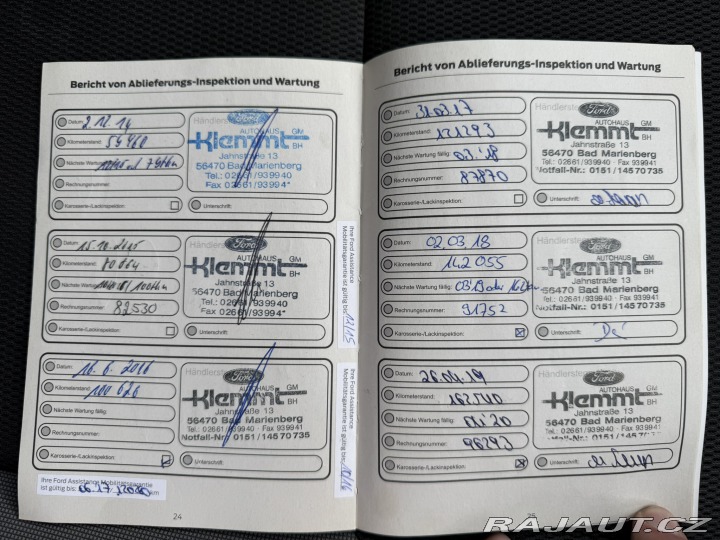 Bericht von Ablieferungs-Inspektion und Wartung
Datum: 2.12.14
Kilometerstand: 59460
Nächste Wartung fällig:
Rechnungsnummer:
Karosserie-/Lackinspektion:
Händlerstempel
Ford
AUTOHAUS GM
Klemmt BH
Jahnstraße 13
56470 Bad Marienberg
Tel.: 02661/939940
Fax 02661/93994*
Unterschrift:
Ihre Ford Assistance
Mobilitätsgarantie ist gültig bis: 12/15
Datum: 15.10.2015
Kilometerstand: 70864
Nächste Wartung fällig:
Rechnungsnummer: 82530
Karosserie-/Lackinspektion:
Ford
AUTOHAUS GM
Klemmt BH
Jahnstraße 13
56470 Bad Marienberg
Tel.: 02661/939940
Fax 02661/93994*
Unterschrift:
Ihre Ford Assistance
Mobilitätsgarantie ist gültig bis: 10/16
Datum: 16.6.2016
Kilometerstand: 100626
Nächste Wartung fällig:
Rechnungsnummer:
Karosserie-/Lackinspektion:
Händlerstempel
Ford
AUTOHAUS GM
Klemmt BH
Jahnstraße 13
56470 Bad Marienberg
Tel.: 02661/939940 · Fax 939941
Notfall-Nr.: 0151/14570735
Unterschrift:
Ihre Ford Assistance Mobilitätsgarantie
ist gültig bis: 06.17 km
24
Bericht von Ablieferungs-Inspektion und Wartung
Datum: 31.03.17
Kilometerstand: 121293
Nächste Wartung fällig: 03.'18
Rechnungsnummer: 87870
Karosserie-/Lackinspektion:
Händlerstempel
Ford
AUTOHAUS GM
Klemmt BH
Jahnstraße 13
56470 Bad Marienberg
Tel.: 02661/939940 · Fax 939941
Notfall-Nr.: 0151/14570735
Unterschrift:
Datum: 02.03.18
Kilometerstand: 142055
Nächste Wartung fällig:
Rechnungsnummer: 91752
Karosserie-/Lackinspektion:
Händlerstempel
Ford
AUTOHAUS GM
Klemmt BH
Jahnstraße 13
56470 Bad Marienberg
Tel.: 02661/939940 · Fax 939941
Notfall-Nr.: 0151/14570735
Unterschrift:
Datum: 26.04.19
Kilometerstand: 162540
Nächste Wartung fällig: 04.'20
Rechnungsnummer: 96293
Karosserie-/Lackinspektion:
Händlerstempel
Ford
AUTOHAUS GM
Klemmt BH
Jahnstraße 13
56470 Bad Marienberg
Tel.: 02661/939940 · Fax 939941
Unterschrift:
25
RAJAUT.CZ